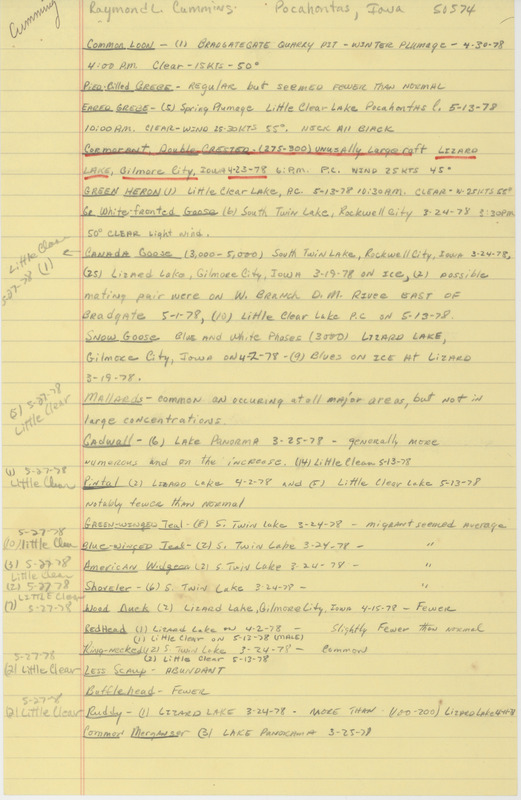 Cumming
Raymond L. Cummins. Pocahontas, Iowa 50574
Common Loon - (1) BRADGATEGATE QUARRY PIT - WINTER PLUMAGE - 4-30-78
4:00 P.M. Clear - 15 KTS - 50°
Pied-Billed GREBE - REGULAR but SEEMED FEWER THAN NORMAL
EARED GREBE - (5) Spring Plumage Little Clear Lake Pocahontas C. 5-13-78
10:00 A.M. CLEAR - WIND 25-30 KTS 55°. NECK All BLACK
Cormorant, Double CRESTED. (275-300) UNUSALLY Large raft LIZARD
LAKE, Gilmore City, IOWA 4-23-78 6: P.M. P.C. WIND 25 KTS 45°
GREEN HERON (1) Little Clear Lake, P.C. 5-13-78 10:30 A.M. CLEAR - 25 KTS 55°
Gr. White-fronted Goose (6) South Twin Lake, Rockwell City 3-24-78 3:30 P.M.
50° CLEAR Light Wind.
Little Clear
5-27-78 (1)
← CANADA Goose (3,000 - 5,000) South Twin Lake, Rockwell City, Iowa 3-24-78,
(25) Lizard Lake, Gilmore City, Iowa 3-19-78 ON ICE, (2) possible
mating pair were on W. Branch D.M. River EAST OF
Bradgate 5-1-78, (10) Little Clear Lake P.C. on 5-13-78.
SNOW GOOSE Blue and White Phases (3000) LIZARD LAKE,
Gilmore City, Iowa on 4-2-78 - (9) Blues on ICE At LIZARD
3-19-78.
(5) 5-27-78
Little Clear
Mallards - common on occuring at all major areas, but not in
large concentrations.
Gadwall - (6) LAKE PANORMA 3-25-78 - generally more
numerous and on the increase. (14) Little Clear 5-13-78
(1) 5-27-78
Little Clear
Pintal (2) LIZARD LAKE 4-2-78 and (5) Little Clear Lake 5-13-78
notably fewer than normal
GREEN-WINGED Teal - (8) S. Twin Lake 3-24-78 - migrant seemed average
5-27-78
10/Little Clear
Blue-WINGED Teal - (2) S. Twin Lake 3-24-78 - "
(3) 5-27-78
Little Clear
American Widgeon (2) S Twin Lake 3-24-78 - "
(2) 5-27-78
Little Clear
Shoveler - (6) S. Twin Lake 3-24-78 - "
(7) 5-27-78
Wood Duck (2) Lizard Lake, Gilmore City, Iowa 4-15-78 - FEWER
RedHead (1) Lizard Lake on 4-2-78 - Slightly Fewer than normal
(1) Little Clear on 5-13-78 (MALE)
Ring-necked (2) S. Twin Lake 3-24-78 - Common
(2) Little Clear 5-13-78
5-27-78
(2) Little Clear
Less Scaup - ABUNDANT
Bufflehead - FEWER
5-27-78
(2) Little Clear
Ruddy - (1) LIZARD LAKE 3-24-78 - MORE THAN (100-200) Lizard Lake
Common Merganser (3) LAKE PANORAMA 3-25-78